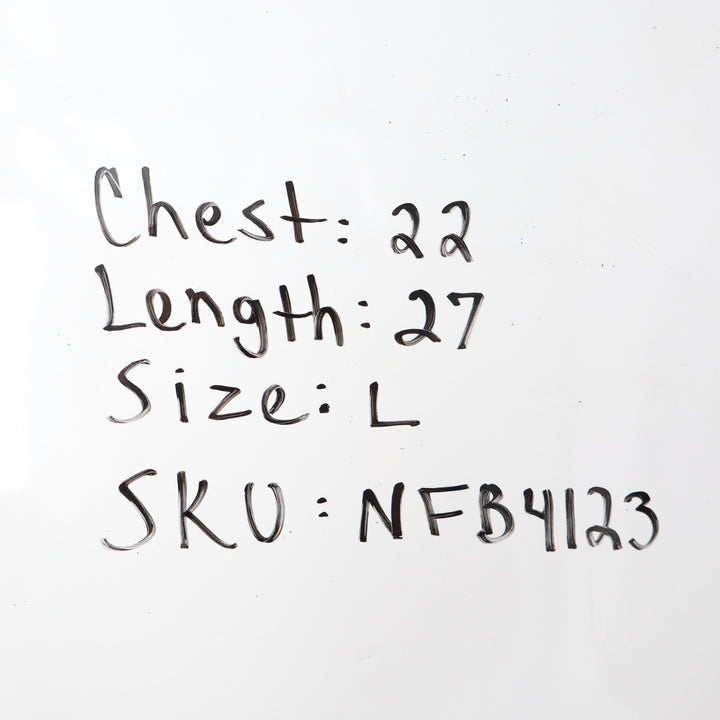 Chest: 22
Length: 27
Size: L
SKU: NFB4123